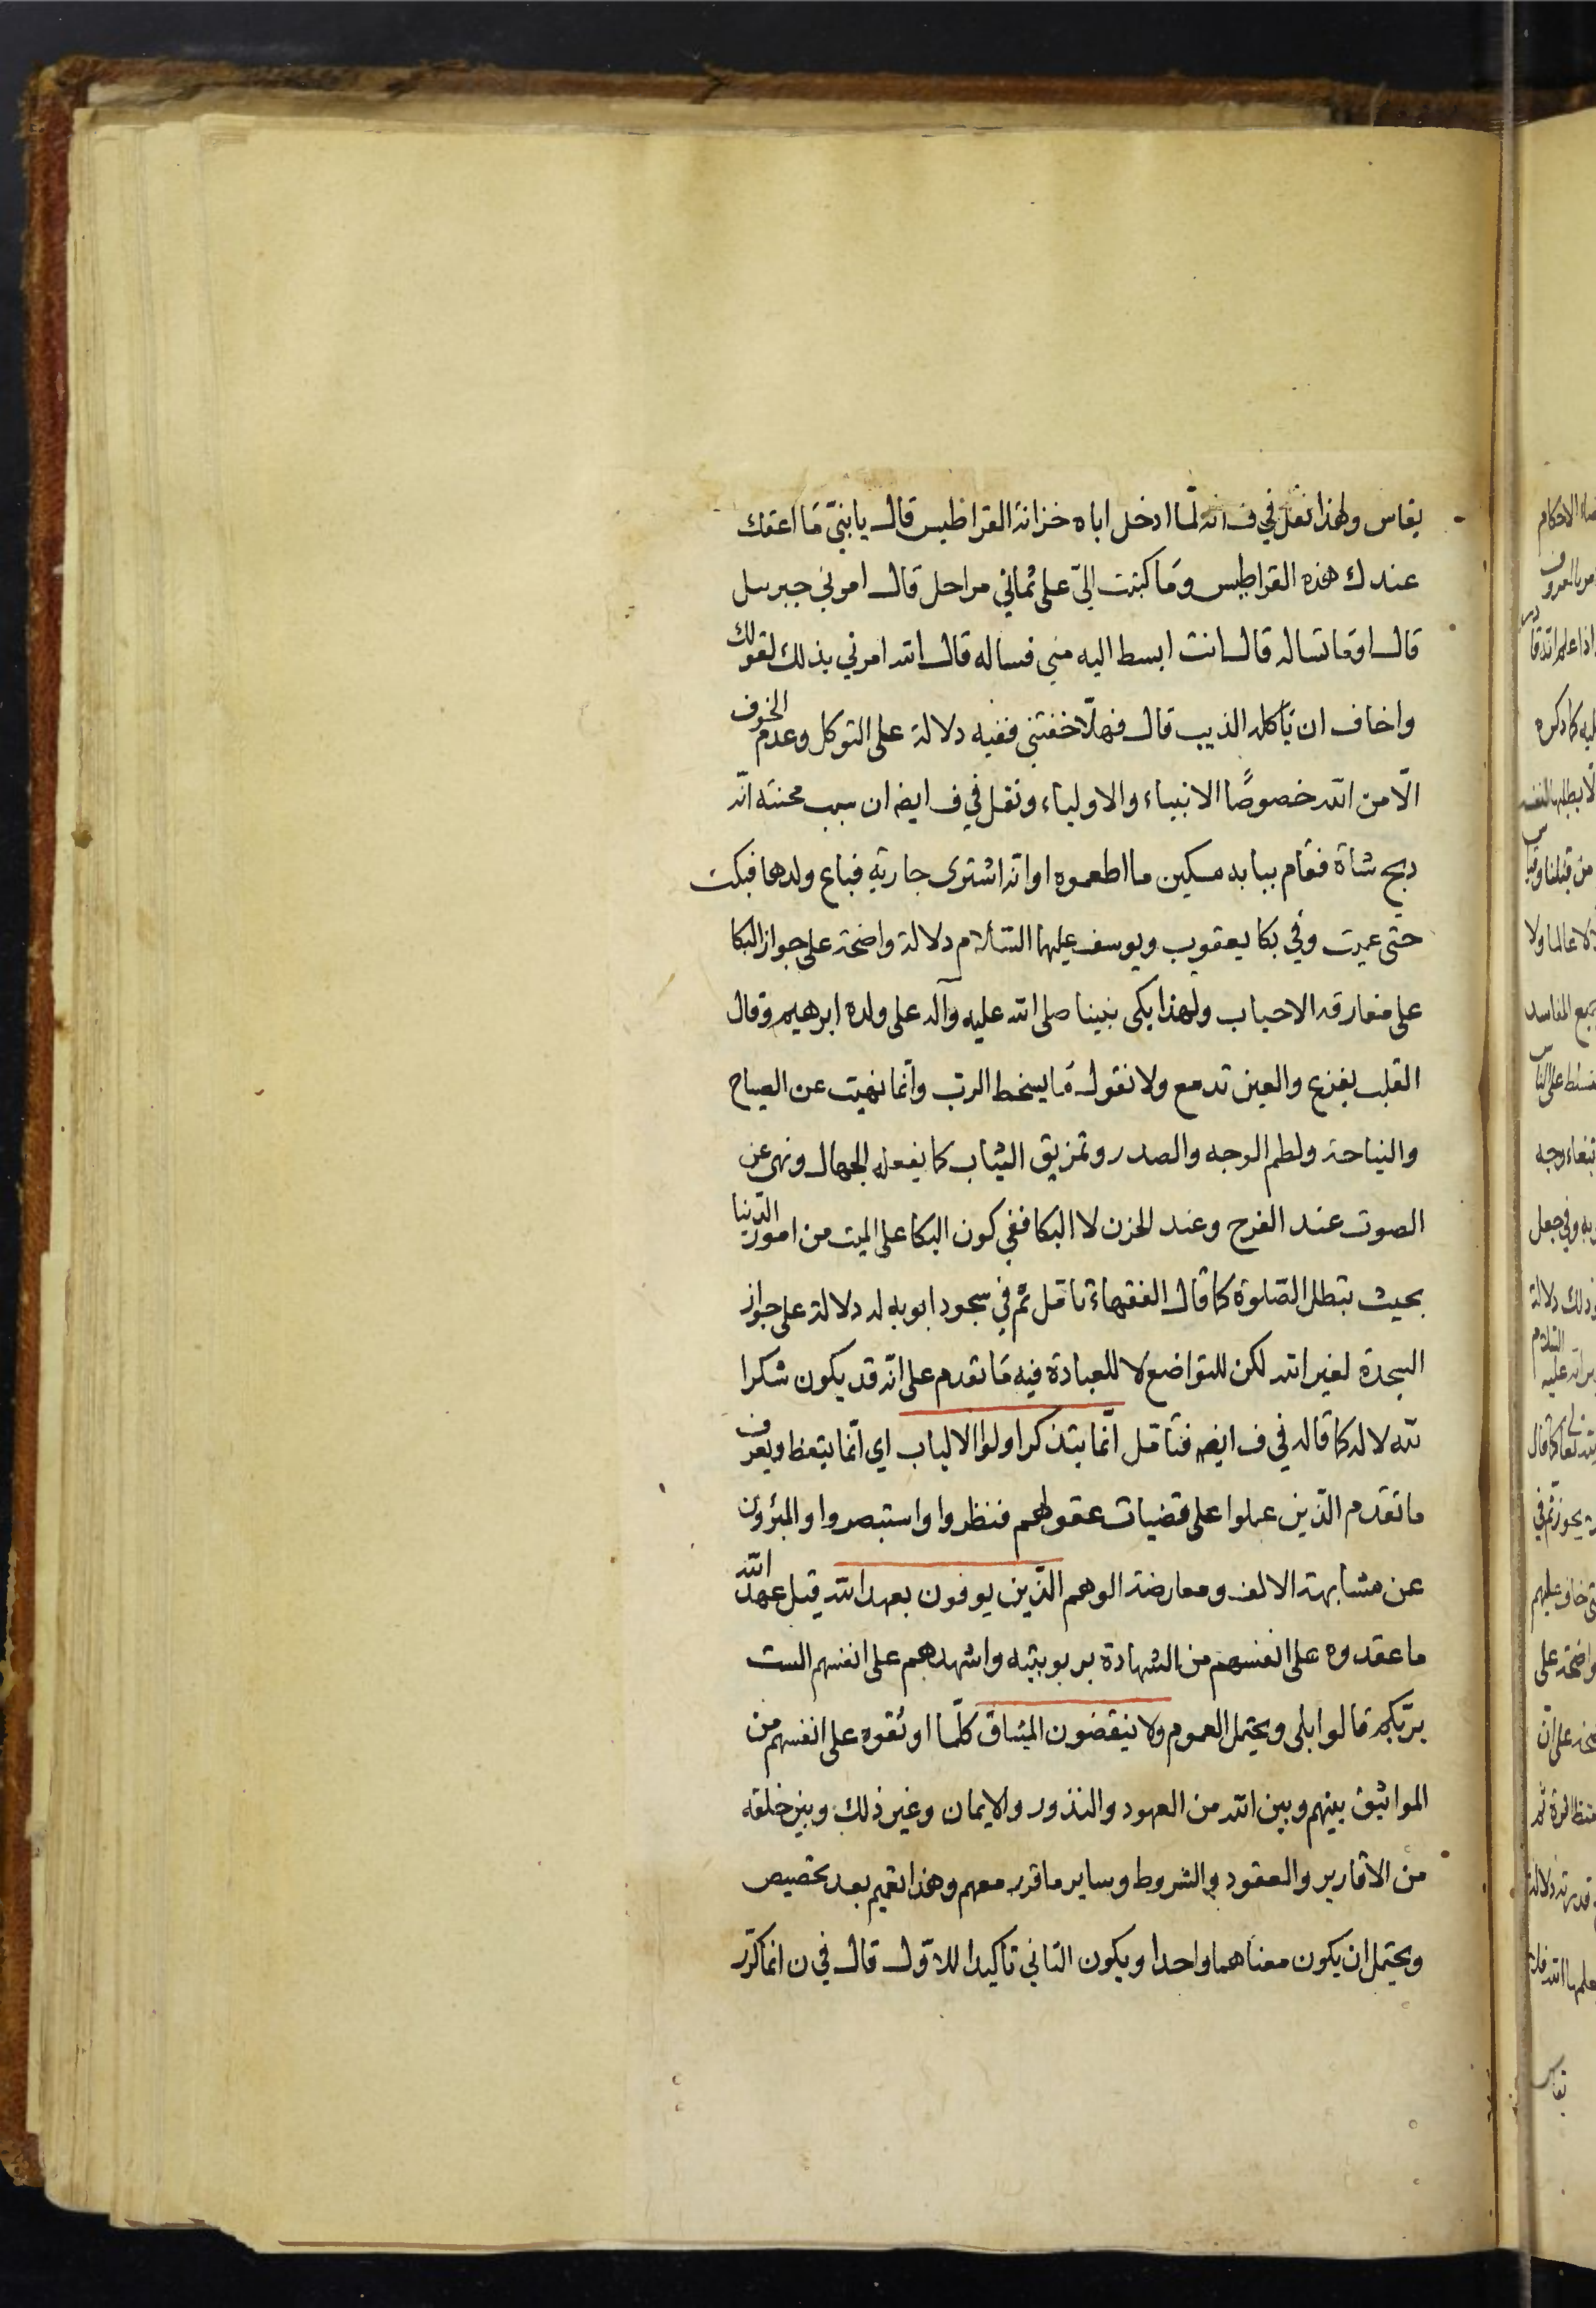 يقاس ولهذا نقل في ف انه لمّا ادخل اباه خزانة القراطيس قال يا بنيّ مَا اعقك
عندك هذه القراطيس ومَا كتبت اليّ على ثماني مراحل قال امرني جبرييل
قال اوما تساله قال انت ابسط اليه مني فساله قال الله امرني بذلك لقولك
واخاف ان يَأكله الذيب قال فهلّا خفتني ففيه دلالة على التوكل وعدم الخوف
الّا من الله خصوصًا الانبياء والاولياء ونقل في ف ايضا ان سبب محنته انّه
ذبح شاة فقام ببابه مسكين ما اطعموه او انه اشترى جارية فباع ولدها فبكت
حتى عميت وفي بكا يعقوب ويوسف عليهما السّلام دلالة واضحة على جواز البكا
على مفارقه الاحباب ولهذا بكى نبينا صلى الله عليه وآله على ولده ابرهيم وقال
القلب يفزع والعين تدمع ولا نقول مَا يسخط الربّ وانّما نهيت عن الصياح
والنياحة ولطم الوجه والصدر وتمزيق الثياب كما يفعله الجهال ونهى عن
الصوت عند الفرح وعند الحزن لا البكا ففي كون البكا على الميت من امور الدّنيا
بحيث تبطل الصّلوة كما قال الفقهاء تامّل ثم في سجود ابويه له دلالة على جواز
السجدة لغير الله لكن للتواضع لا للعبادة فيه مَا تقدم على انّه قد يكون شكرا
لله لا له كما قاله في ف ايضا فتأمّل انّما يتذكر اولوا الالباب اي انّما يتعظ ويعرف
ما تقدم الّذين عملوا على قضيات عقولهم فنظروا واستبصروا والمبرؤن
عن مشابهة الالف ومعارضة الوهم الّذين يوفون بعهد الله قيل عهد الله
ما عقدوه على انفسهم من الشهادة بربوبيّته واشهدهم على انفسهم الست
بربّكم قالوا بلى ويحتمل العموم ولا ينقضون الميثاق كلّما اوثقوه على انفسهم من
المواثيق بينهم وبين الله من العهود والنذور والايمان وغير ذلك وبين خلقه
من الاقارير والعقود والشروط وساير ما قرر معهم وهذا تعميم بعد تخصيص
ويحتمل ان يكون معناهما واحدا ويكون الثاني تاكيدا للاوّل قال في ن انما كرّر